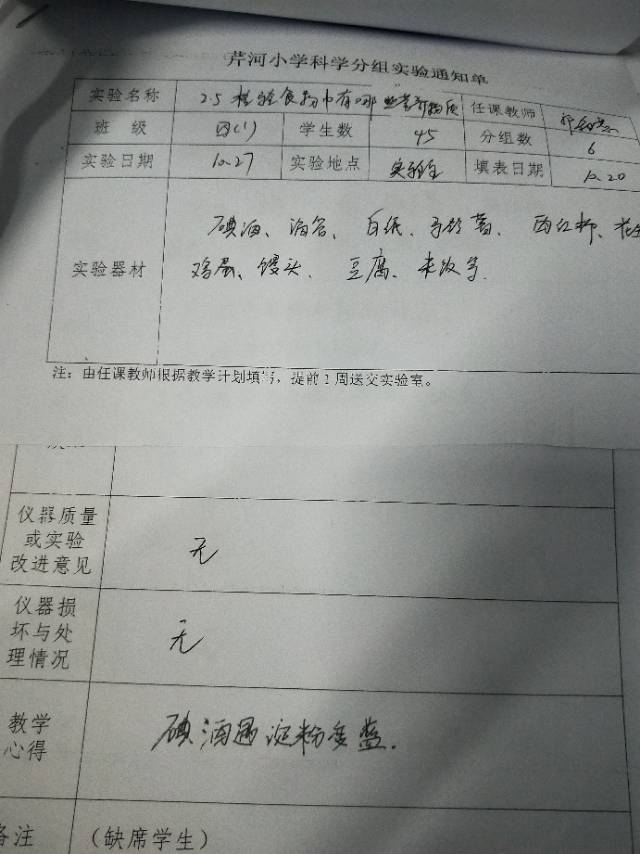 芹河小学科学分组实验通知单
实验名称 25检验食物中有哪些营养物质 任课教师
班 级 四(1) 学生数 45 分组数 6
实验日期 10.27 实验地点 实验室 填表日期 10.20
碘酒、滴管、白纸、马铃薯、西红柿、
实验器材 鸡蛋、馒头、豆腐、米饭等
注：由任课教师根据教学计划填写，提前1周送交实验室。
仪器质量
或实验
改进意见
无
仪器损
坏与处
理情况
无
教学
心得
碘酒遇淀粉变蓝.
备注 （缺席学生）